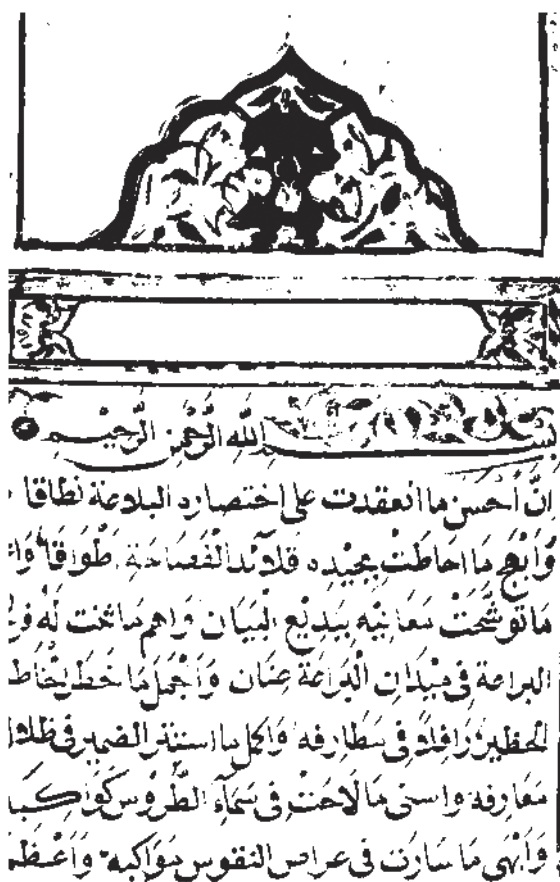 بسم الله الرحمن الرحيم
انّ أحسن ما انعقدت على اختصاره البلاغة نطاقا
وَابْهج ما احاطَتْ بجيْده قلائد الفصاحة طوَاقا
ما توشّحَتْ مَعانيه ببديْع البَيان وَاهم ما ثنت لَه
البراعة فى ميْدان اليراعة عنان وَاجْمل مَا خطر
فى مطارفه وَاكمل ما استتر الضمير فى ظلال
معارفه واسنى ما لَاحَتْ فى سَمآء الطّرُوس كوَاكبه
وَابْهى ما سارت فى عراص النقوس موَاكبه وَاعْظم